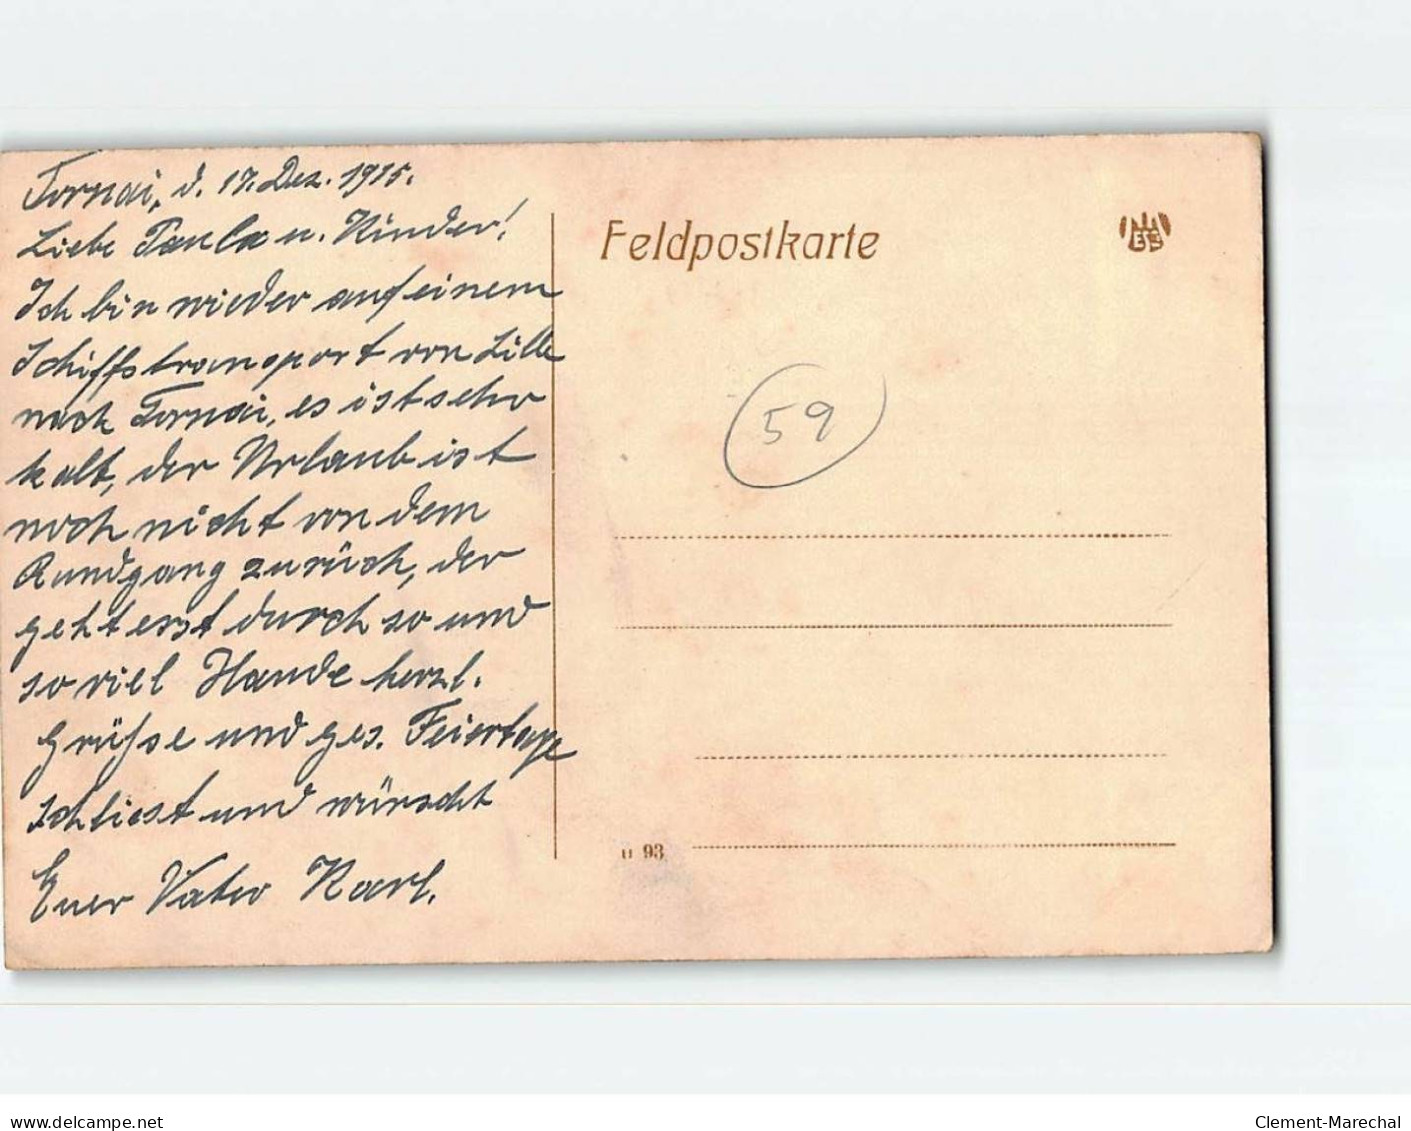 Tornai, d. 17. Dez. 1915.
Liebe Paula u. Kinder!
Ich bin wieder auf einem
Schiffstransport von Lille
nach Tornai, es ist sehr
kalt, der Urlaub ist
noch nicht von dem
Rundgang zurück, der
geht erst durch so und
so viel Hände herzl.
Grüße und ges. Feiertage
schliest und wünscht
Euer Vater Karl.
Feldpostkarte
59
u 93
delcampe.net
Clement-Marechal